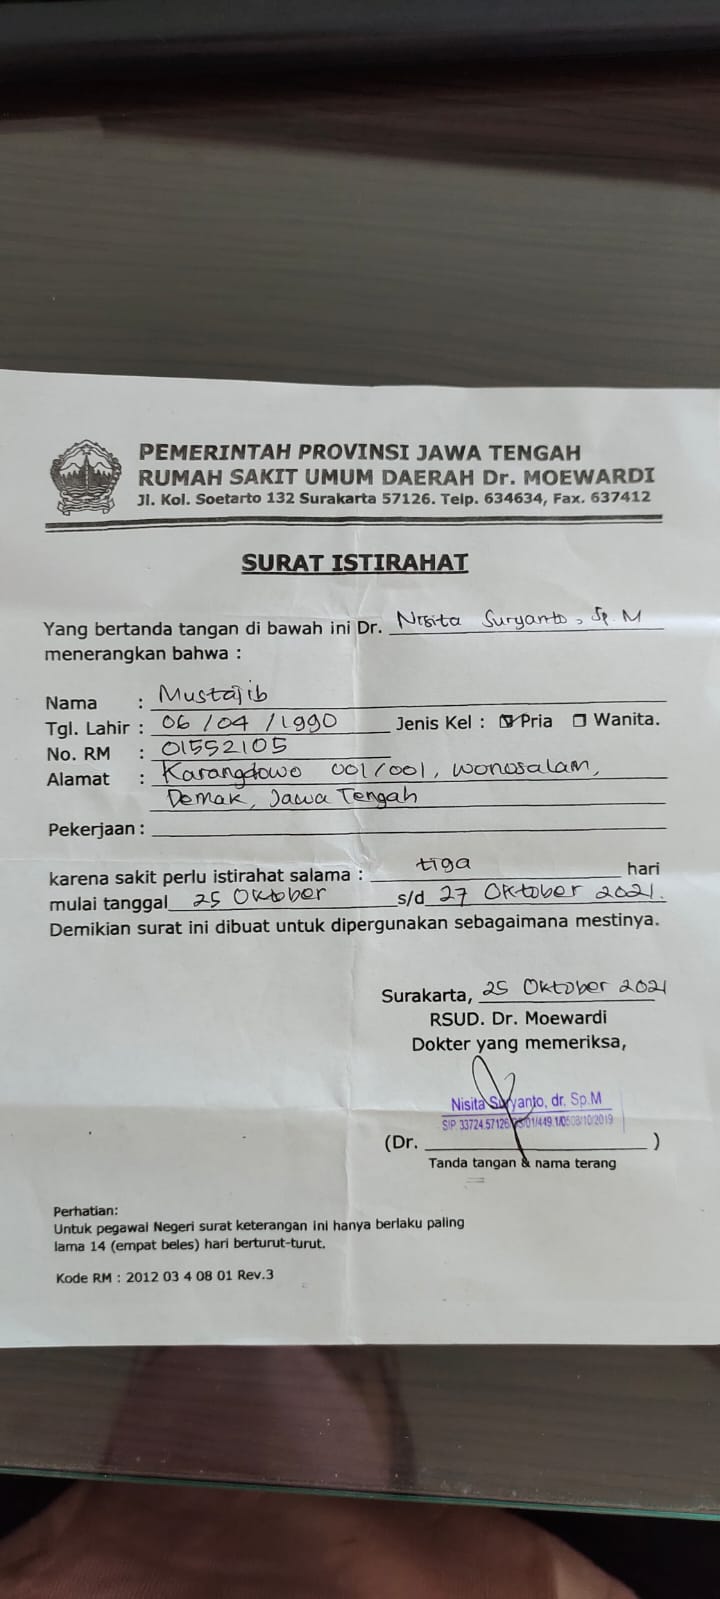 PEMERINTAH PROVINSI JAWA TENGAH
RUMAH SAKIT UMUM DAERAH Dr. MOEWARDI
Jl. Kol. Soetarto 132 Surakarta 57126. Telp. 634634, Fax. 637412
SURAT ISTIRAHAT
Yang bertanda tangan di bawah ini Dr. Nisita Suryanto, Sp.M
menerangkan bahwa :
Nama : Mustajib
Tgl. Lahir : 06 / 04 / 1990 Jenis Kel : Pria Wanita.
No. RM : 01552105
Alamat : Karangdowo 001/001, Wonosalam,
Demak, Jawa Tengah
Pekerjaan :
karena sakit perlu istirahat salama : tiga hari
mulai tanggal 25 Oktober s/d 27 Oktober 2021.
Demikian surat ini dibuat untuk dipergunakan sebagaimana mestinya.
Surakarta, 25 Oktober 2021
RSUD. Dr. Moewardi
Dokter yang memeriksa,
Nisita Suryanto, dr. Sp.M
SIP 33724.57126
(Dr. )
Tanda tangan & nama terang
Perhatian:
Untuk pegawai Negeri surat keterangan ini hanya berlaku paling
lama 14 (empat beles) hari berturut-turut.
Kode RM : 2012 03 4 08 01 Rev.3